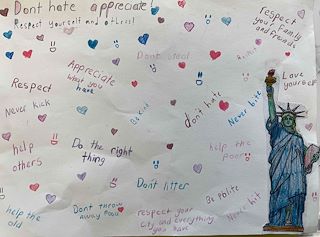 Dont hate appreciate
Respect yourself and others!
respect
your family
and friends
Dont steal
Appreciate
what you
have
Love
yourself
Respect
Never kick
Be kind
don't hate
Never bite
help
others
Do the right
thing
help the
poor
Don't litter
Be polite
help the
old
Don't throw
away food
respect your
city and everything
you have
Never hit